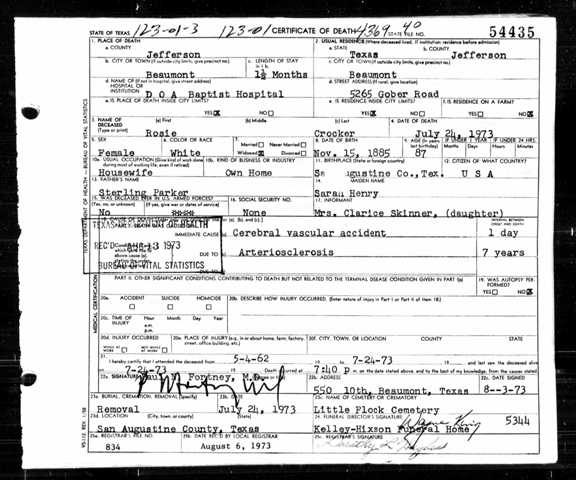 STATE OF TEXAS 123-01-3 123-01 CERTIFICATE OF DEATH 4369 40 54435
1. PLACE OF DEATH 2. USUAL RESIDENCE (Where deceased lived. If institution: residence before admission)
a. COUNTY Jefferson a. STATE Texas b. COUNTY Jefferson
b. CITY OR TOWN (If outside city limits, give precinct no.) Beaumont c. LENGTH OF STAY in 1 b. 1½ Months c. CITY OR TOWN (If outside city limits, give precinct no.) Beaumont
d. NAME OF (If not in hospital, give street address) HOSPITAL OR INSTITUTION D O A Baptist Hospital d. STREET ADDRESS (If rural, give location) 5265 Gober Road
e. IS PLACE OF DEATH INSIDE CITY LIMITS? YES NO e. IS RESIDENCE INSIDE CITY LIMITS? YES NO f. IS RESIDENCE ON A FARM? YES NO
3. NAME OF DECEASED (Type or print) (a) First Rosie (b) Middle (c) Last Crocker 4. DATE OF DEATH July 24, 1973
5. SEX Female 6. COLOR OR RACE White 7. Married Never Married Widowed Divorced 8. DATE OF BIRTH Nov. 15, 1885 9. AGE (In years last birthday) 87 IF UNDER 1 YEAR Months Days IF UNDER 24 HRS. Hours Min.
10a. USUAL OCCUPATION (Give kind of work done during most of working life, even if retired) Housewife 10b. KIND OF BUSINESS OR INDUSTRY Own Home 11. BIRTHPLACE (State or foreign country) gustine Co., Tex. 12. CITIZEN OF WHAT COUNTRY? U S A
13. FATHER'S NAME Sterling Parker 14. MAIDEN NAME Sarah Henry
15. WAS DECEASED EVER IN U.S. ARMED FORCES? (Yes, no, or unknown) No (If yes, give war or dates of service) 16. SOCIAL SECURITY NO. None 17. INFORMANT Mrs. Clarice Skinner, (daughter)
TEXAS HEALTH
REC'D AUG 13 1973
BUREAU OF VITAL STATISTICS
IMMEDIATE CAUSE (a) Cerebral vascular accident INTERVAL BETWEEN ONSET AND DEATH 1 day
DUE TO (b) Arteriosclerosis 7 years
DUE TO (c)
PART II. OTHER SIGNIFICANT CONDITIONS CONTRIBUTING TO DEATH BUT NOT RELATED TO THE TERMINAL DISEASE CONDITION GIVEN IN PART I(a) 19. WAS AUTOPSY PERFORMED? YES NO
20a. ACCIDENT SUICIDE HOMICIDE 20b. DESCRIBE HOW INJURY OCCURRED. (Enter nature of injury in Part I or Part II of item 18.)
20c. TIME OF INJURY Hour Month Day Year a.m. p.m.
20d. INJURY OCCURRED WHILE AT WORK NOT WHILE AT WORK 20e. PLACE OF INJURY (e.g., in or about home, farm, factory, street, office building, etc.) 20f. CITY, TOWN, OR LOCATION COUNTY STATE
21. I hereby certify that I attended the deceased from 5-4-62 to 7-24-73 and last saw the deceased alive
7-24-73 Death occurred at 7:40 p m. on the date stated above, and to the best of my knowledge, from the causes stated.
22a. SIGNATURE Paul Fortney, M.D. 22b. ADDRESS 550 10th, Beaumont, Texas 22c. DATE SIGNED 8--3-73
23a. BURIAL, CREMATION, REMOVAL (Specify) Removal 23b. DATE July 24, 1973 23c. NAME OF CEMETERY OR CREMATORY Little Flock Cemetery
23d. LOCATION (City, town, or county) (State) San Augustine County, Texas 24. FUNERAL DIRECTOR'S SIGNATURE Wayne King 5344 Kelley-Hixson Funeral Home
25a. REGISTRAR'S FILE NO. 834 25b. DATE REC'D BY LOCAL REGISTRAR August 6, 1973 25c. REGISTRAR'S SIGNATURE Dorothy L.
TEXAS DEPARTMENT OF HEALTH - BUREAU OF VITAL STATISTICS
MEDICAL CERTIFICATION